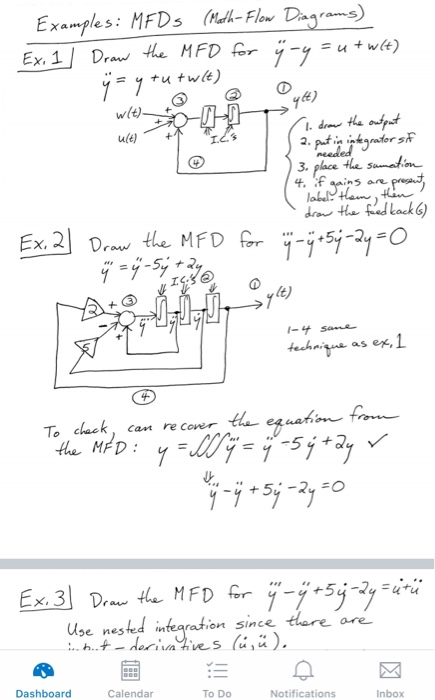 Examples: MFDs (Math-Flow Diagrams)
Ex. 1 Draw the MFD for ÿ-y = u+w(t)
ÿ = y+u+w(t)
③ ② ① y(t)
w(t) +
u(t) + + I.C.'s
④
1. draw the output
2. put in integrators if needed
3. place the sumation
4. if gains are present,
label them, then
draw the feedback(s)
Ex. 2 Draw the MFD for y⃛-ÿ+5ẏ-2y=0
y⃛ = ÿ-5ẏ+2y
I.C.'s ②
2 + ③ ① y(t)
- y⃛ ÿ ẏ
5 +
1-4 same
technique as ex. 1
④
To check, can recover the equation from
the MFD: y = ∭y⃛ = ÿ-5ẏ+2y ✓
⇓
y⃛-ÿ+5ẏ-2y=0
Ex. 3 Draw the MFD for y⃛-ÿ+5ẏ-2y=u̇+ü
Use nested integration since there are
input-derivatives (u̇,ü).
Dashboard Calendar To Do Notifications Inbox